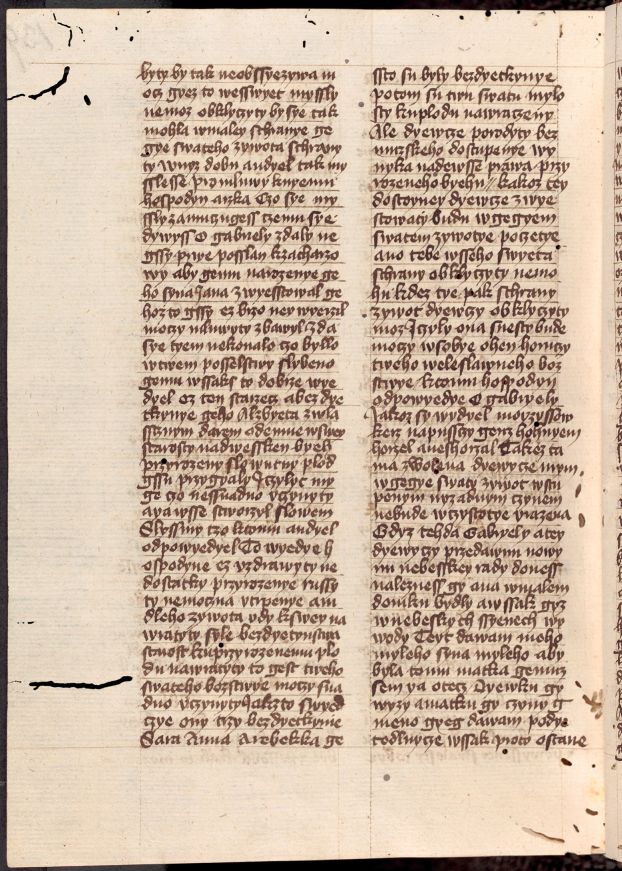 byty by tak neobssyezywa m
ocz gyez to wesswyet myssly
nemoz obklyczyty by sye tak
mohla wmaley schranye ge
gye swateho zywota schrany
ty wnyz dobu andyel tak my
slesse promluwy knyemu
hospodyn rzka Czo sye my
sly zamuczugess czemu sye
dywyss O gabriely zdaly ne
gssy prwe posslan kzacharzo
wy aby gemu narozenye ge
ho syna Jana zwyestowal ge
hoz to gssy ez brzo newyerzil
moczy mluwyty zbawyl zda
sye tyem nekonalo czo byllo
wtwem posselstwy slybeno
gemu wssaks to dobrze wye
dyel ez ten starzecz a bez dye
tkynye geho Alzbyeta zwla
sstnym darem odemne wswey
starosty nadwessken byeh
przyrozeny slowutny plod
gsu przygyaly Czyly cz my
ge czo nessnadno vczynyty
a ya wsse stworzyl slowem
Slyssmy czo ktomu andyel
odpowyedyel To wyedye h
ospodyne ez vzdrawyty ne
dostatky przyrozenye russy
ty nemoczna vtrpenye am
dleho zywota vdy kswey na
wratyty syle bezdyetynstwa
starost kuprzyrozenemu plo
du nawratyty to gest tweho
swateho bozstwye moczy sna
dno vczynyty Jakz to swyed
czye ony trzy bezdyetkynie
Sara Anna a rebekka ge
ssto su byly bezdyetkynye
potom su twu swatu mylo
sty kuplodu nawraczeny
Ale dyewcze porodyty bez
muzskeho dostupenye wy
nyka nadewsse prawa przy
rozeneho byehu kakoz tey
dostoyney dyewcze zwye
stowaty budu wgegyem
swatem zywotye poczetye
a no tebe wsseho swyeta
schrany obklyczyty nemo
hu kdez tye pak schrany
zywot dyewczy obklyczyty
moz Czyly ona snesty bude
moczy wsobye ohen horuczy
tweho weleslawneho boz
stwye ktomu hospodyn
odpowyedye O gabryely
Jakoz sy wydyel moyzyssow
kerz napusczy genz horzyem
horzel a neshorzal Takez ta
ma zwolena dyewycze mym
wgegye swaty zywot wstu
penym nyzadnym czynem
nebude wczystotye vrazena
Gdyz tehda Gabryely a tey
dyewyczy przedawnu nowy
nu nebesskey rady doness
nalezness gy ana wmalem
domku bydly a wssak gyz
wnebeskych ssyenech wy
wody Teyt dawam meho
myleho syna myleho aby
byla tomu matka gemuz
sem ya otecz Dyewku gy
wyzy a matku gy czyny g
meno gyeg dawam podye
kedlnycze wssak proto ostane